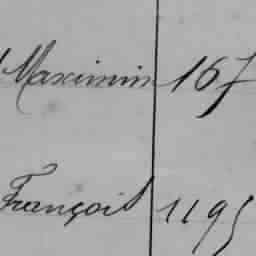 Maximin 167
François 1195